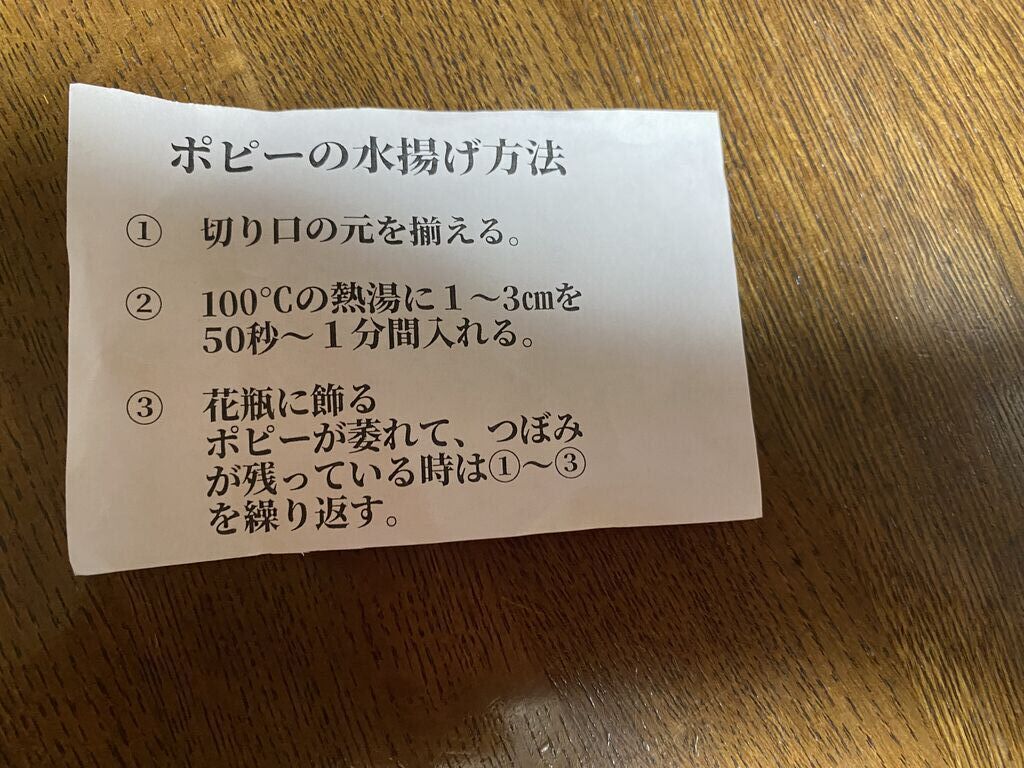 ポピーの水揚げ方法
① 切り口の元を揃える。
② 100℃の熱湯に１～3㎝を
50秒～１分間入れる。
③ 花瓶に飾る
ポピーが萎れて、つぼみ
が残っている時は①～③
を繰り返す。